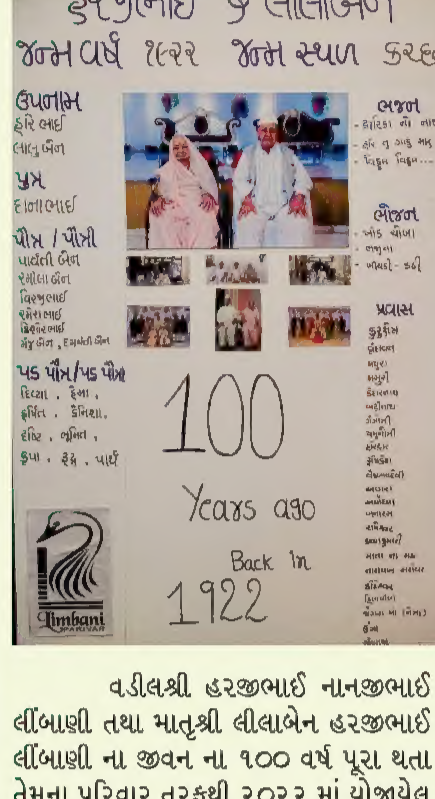 હરજીભાઈ & લીલાબેન
જન્મ વર્ષ ૧૯૨૨ જન્મ સ્થળ કચ્છ
ઉપનામ
હરિ ભાઈ
લાલુ બેન
પુત્ર
દાનાભાઈ
પૌત્ર / પૌત્રી
પાર્વતી બેન
રમીલા બેન
વિરજીભાઈ
રમેશભાઈ
કિશોરભાઈ
મંજુ બેન, દમયંતી બેન
પડ પૌત્ર/પડ પૌત્રી
દિવ્યા, હેમા,
હર્ષિત, ક્રેનિશા,
દ્રષ્ટિ, ભૂમિત,
કૃપા, રુદ્ર, પાર્થ
Limbani
PARIVAR
100
Years ago
Back In
1922
ભજન
- દ્વારિકા નો નાથ
- હરિ નુ
ભોજન
- ખીચડી - કઢી
પ્રવાસ
મથુરા
કેદારનાથ
બદ્રીનાથ
ગંગોત્રી
હરિદ્વાર
રામેશ્વર
કન્યાકુમારી
માતા ના મઢ
નારાયણ સરોવર
વડીલશ્રી હરજીભાઈ નાનજીભાઈ
લીંબાણી તથા માતૃશ્રી લીલાબેન હરજીભાઈ
લીંબાણી ના જીવન ના ૧૦૦ વર્ષ પૂરા થતા
તેમના પરિવાર તરફથી ૨૦૨૨ માં યોજાયેલ